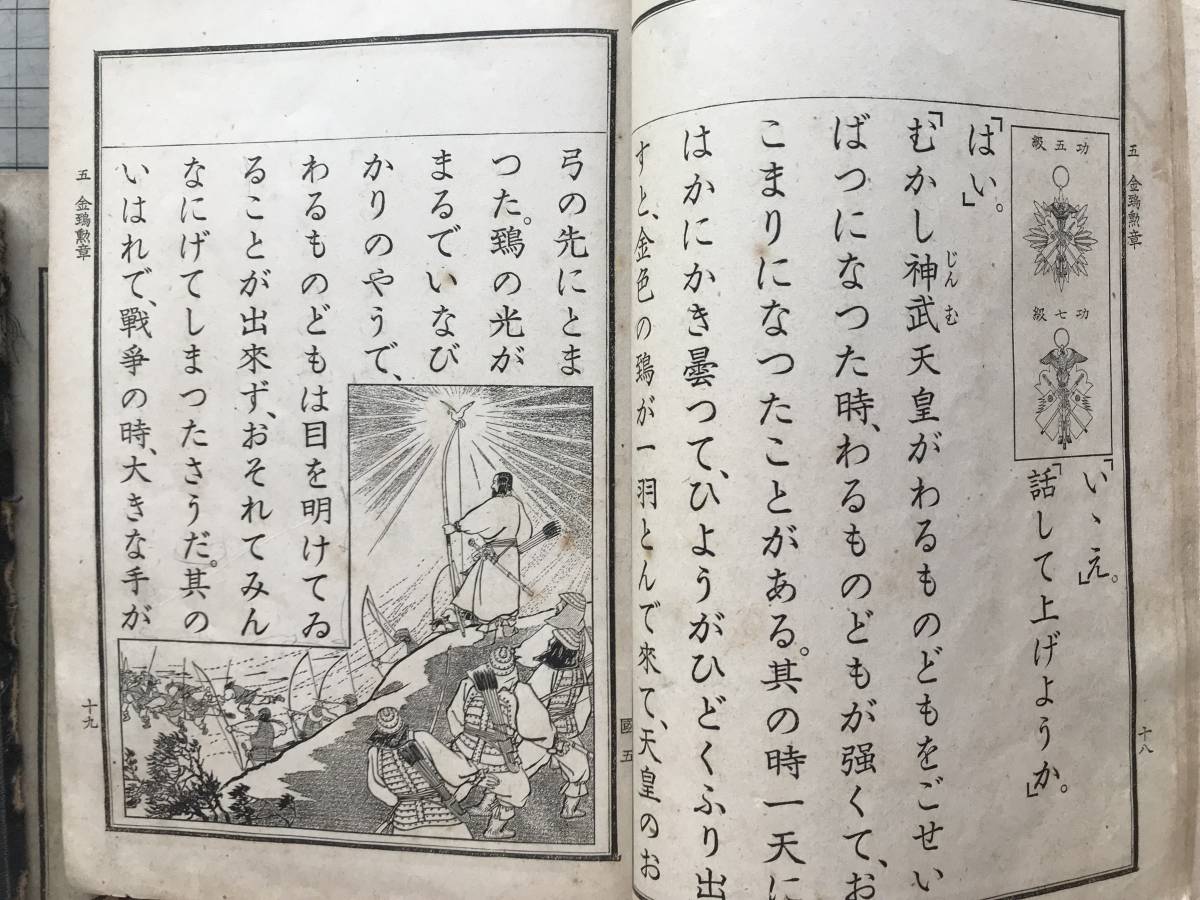 五 金鵄勲章
功五級
功七級
「いゝえ。」
「話して上げようか。」
「はい。」
「むかし神武天皇がわるものどもをごせい
じんむ
ばつになつた時、わるものどもが强くて、お
こまりになつたことがある。其の時一天に
はかにかき曇つて、ひようがひどくふり出
すと、金色の鵄が一羽とんで來て、天皇のお
十八
弓の先にとま
つた。鵄の光が
まるでいなび
かりのやうで、
わるものどもは目を明けてゐ
ることが出來ず、おそれてみん
なにげてしまつたさうだ。其の
いはれで、戰爭の時、大きな手が
國五
五 金鵄勲章
十九